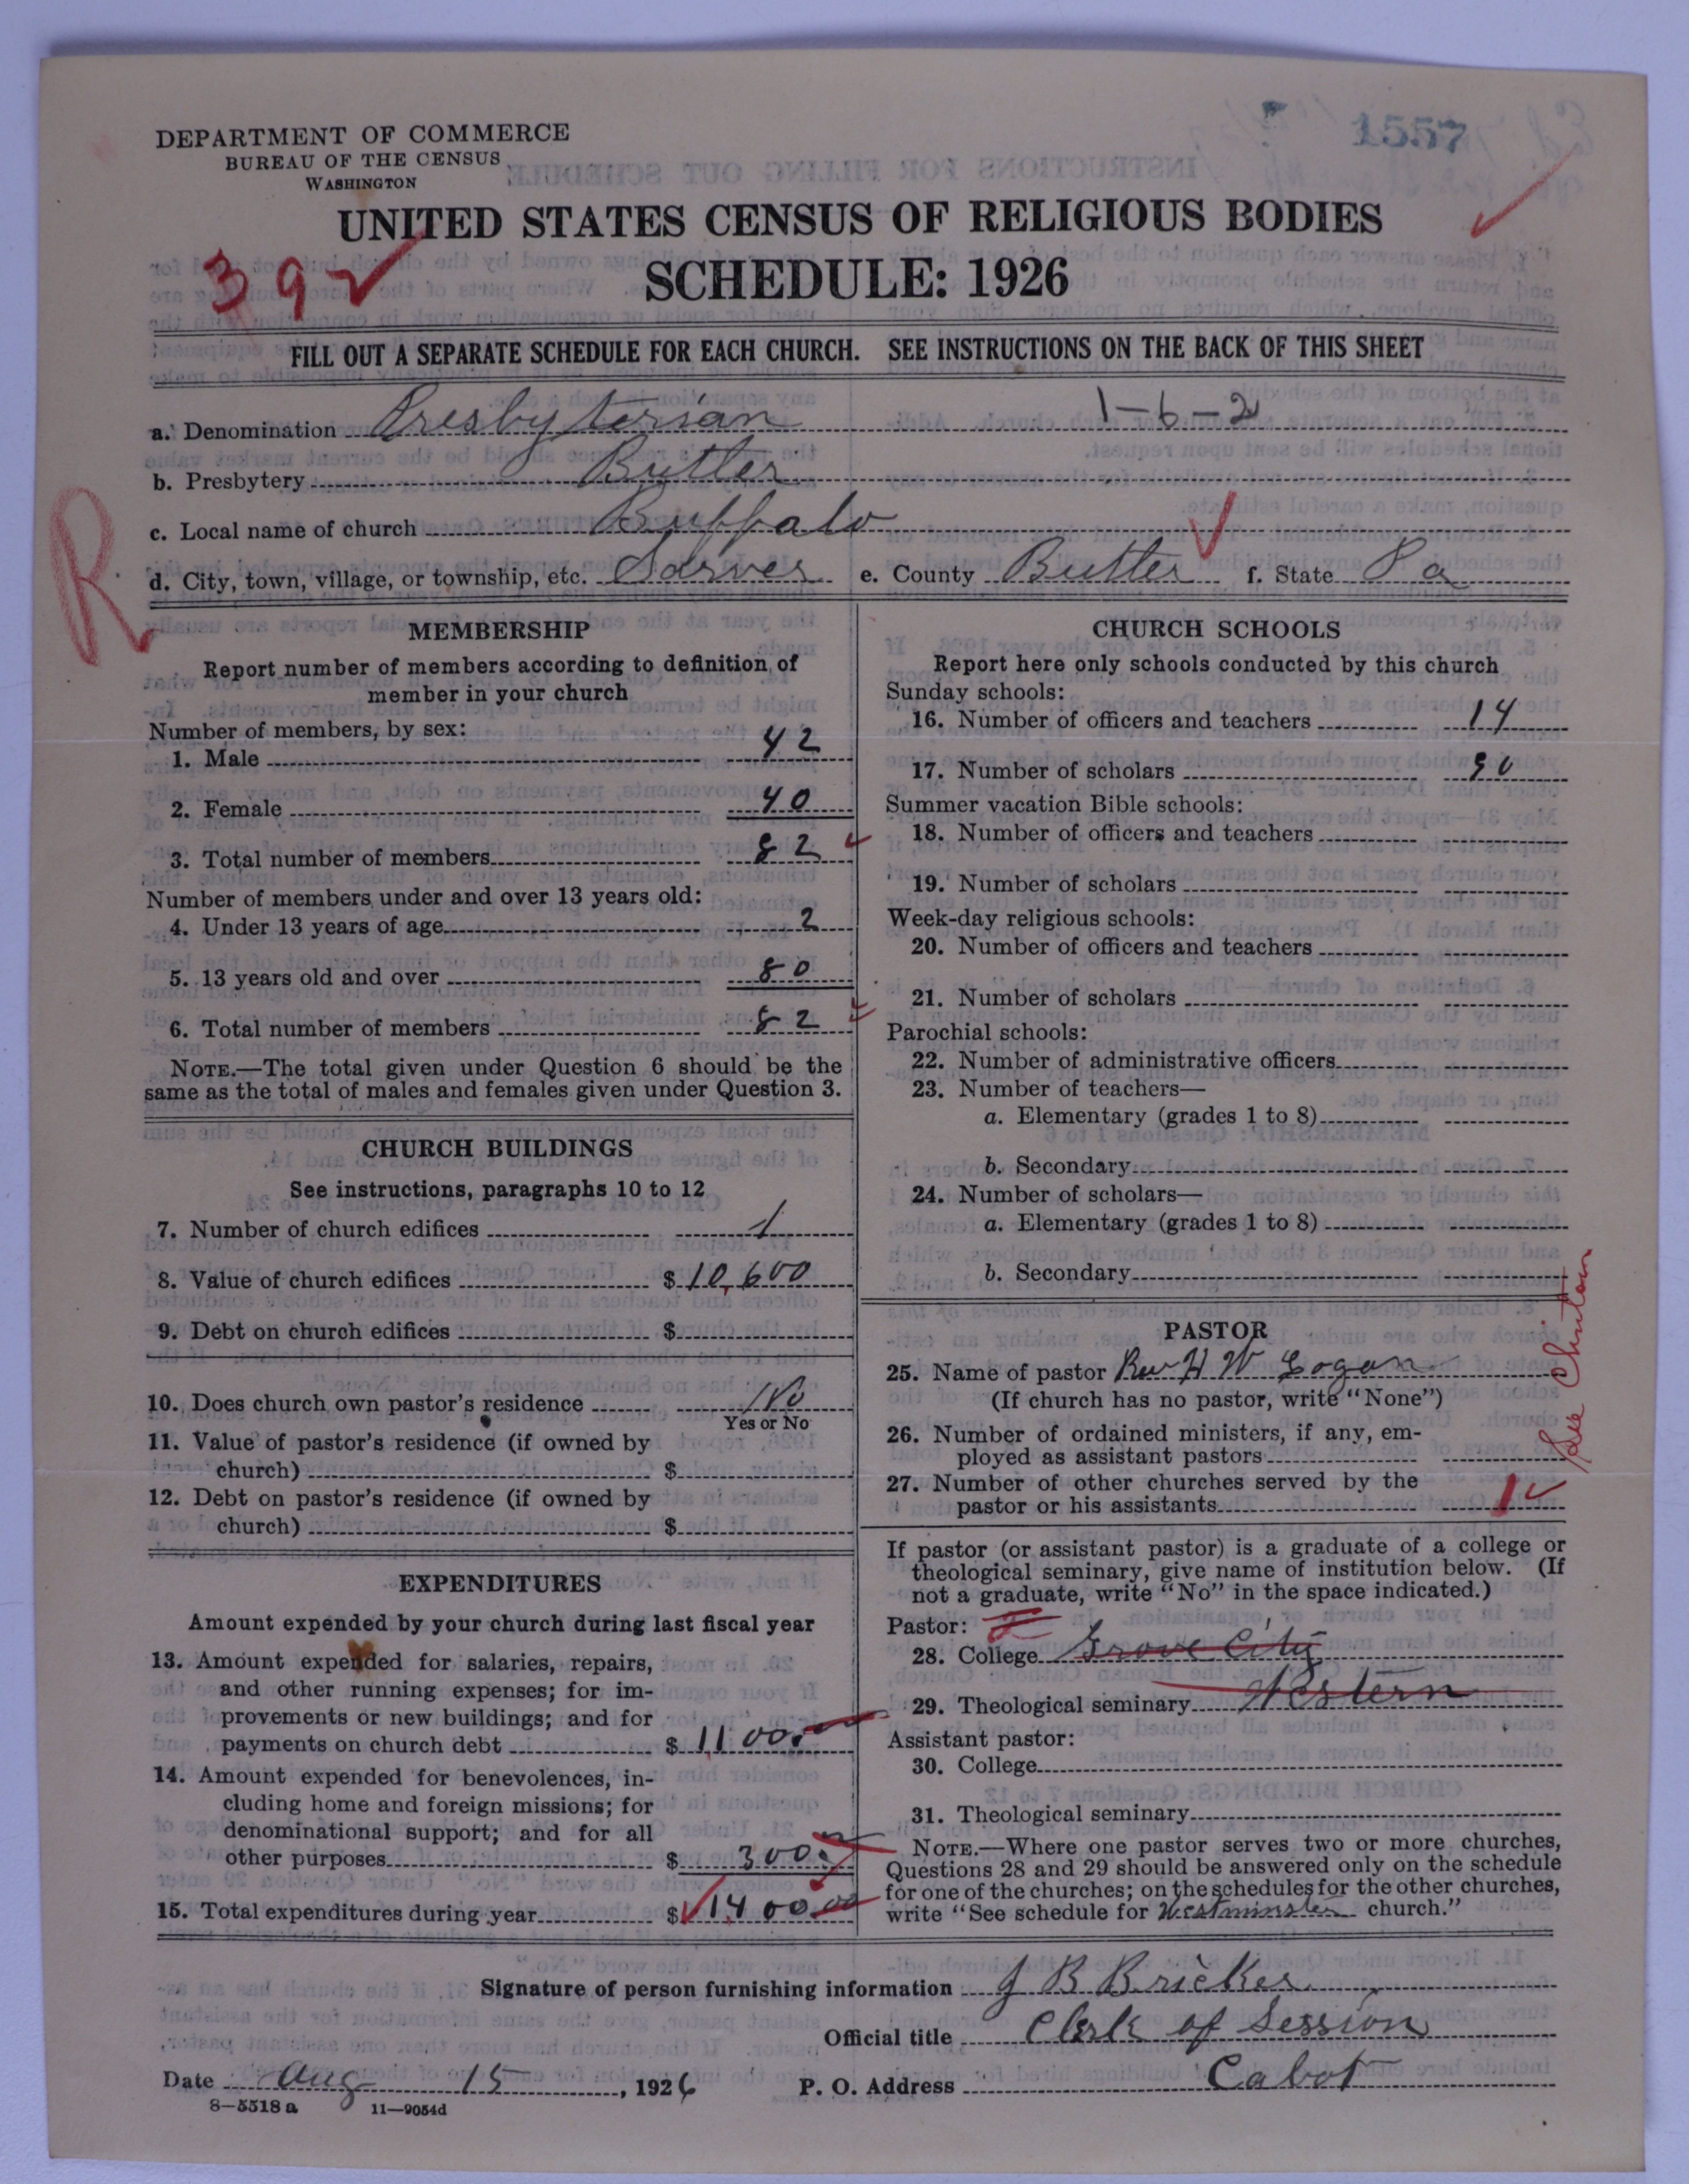 1557
DEPARTMENT OF COMMERCE
BUREAU OF THE CENSUS
WASHINGTON
UNITED STATES CENSUS OF RELIGIOUS BODIES
SCHEDULE: 1926
39
FILL OUT A SEPARATE SCHEDULE FOR EACH CHURCH. SEE INSTRUCTIONS ON THE BACK OF THIS SHEET
a. Denomination Presbyterian 1-6-2
b. Presbytery Butler
c. Local name of church Buffalo
R
d. City, town, village, or township, etc. Sarver e. County Butler f. State Pa
MEMBERSHIP
Report number of members according to definition of
member in your church
Number of members, by sex:
1. Male 42
2. Female 40
3. Total number of members 82
Number of members under and over 13 years old:
4. Under 13 years of age 2
5. 13 years old and over 80
6. Total number of members 82
NOTE.—The total given under Question 6 should be the
same as the total of males and females given under Question 3.
CHURCH BUILDINGS
See instructions, paragraphs 10 to 12
7. Number of church edifices 1
8. Value of church edifices $ 10,600
9. Debt on church edifices $
10. Does church own pastor's residence No
Yes or No
11. Value of pastor's residence (if owned by
church) $
12. Debt on pastor's residence (if owned by
church) $
EXPENDITURES
Amount expended by your church during last fiscal year
13. Amount expended for salaries, repairs,
and other running expenses; for im-
provements or new buildings; and for
payments on church debt $ 1100.
14. Amount expended for benevolences, in-
cluding home and foreign missions; for
denominational support; and for all
other purposes $ 300.
15. Total expenditures during year $ 1400.00
CHURCH SCHOOLS
Report here only schools conducted by this church
Sunday schools:
16. Number of officers and teachers 14
17. Number of scholars 90
Summer vacation Bible schools:
18. Number of officers and teachers
19. Number of scholars
Week-day religious schools:
20. Number of officers and teachers
21. Number of scholars
Parochial schools:
22. Number of administrative officers
23. Number of teachers—
a. Elementary (grades 1 to 8)
b. Secondary
24. Number of scholars—
a. Elementary (grades 1 to 8)
b. Secondary
PASTOR
25. Name of pastor Rev H W Logan
(If church has no pastor, write "None")
26. Number of ordained ministers, if any, em-
ployed as assistant pastors
27. Number of other churches served by the
pastor or his assistants 1
See Clinton
If pastor (or assistant pastor) is a graduate of a college or
theological seminary, give name of institution below. (If
not a graduate, write "No" in the space indicated.)
Pastor:
28. College Grove City
29. Theological seminary Western
Assistant pastor:
30. College
31. Theological seminary
NOTE.—Where one pastor serves two or more churches,
Questions 28 and 29 should be answered only on the schedule
for one of the churches; on the schedules for the other churches,
write "See schedule for Westminster church."
Signature of person furnishing information J B Bricker
Official title Clerk of Session
Date Aug 15, 1926 P. O. Address Cabot
8-5518 a 11-9054d